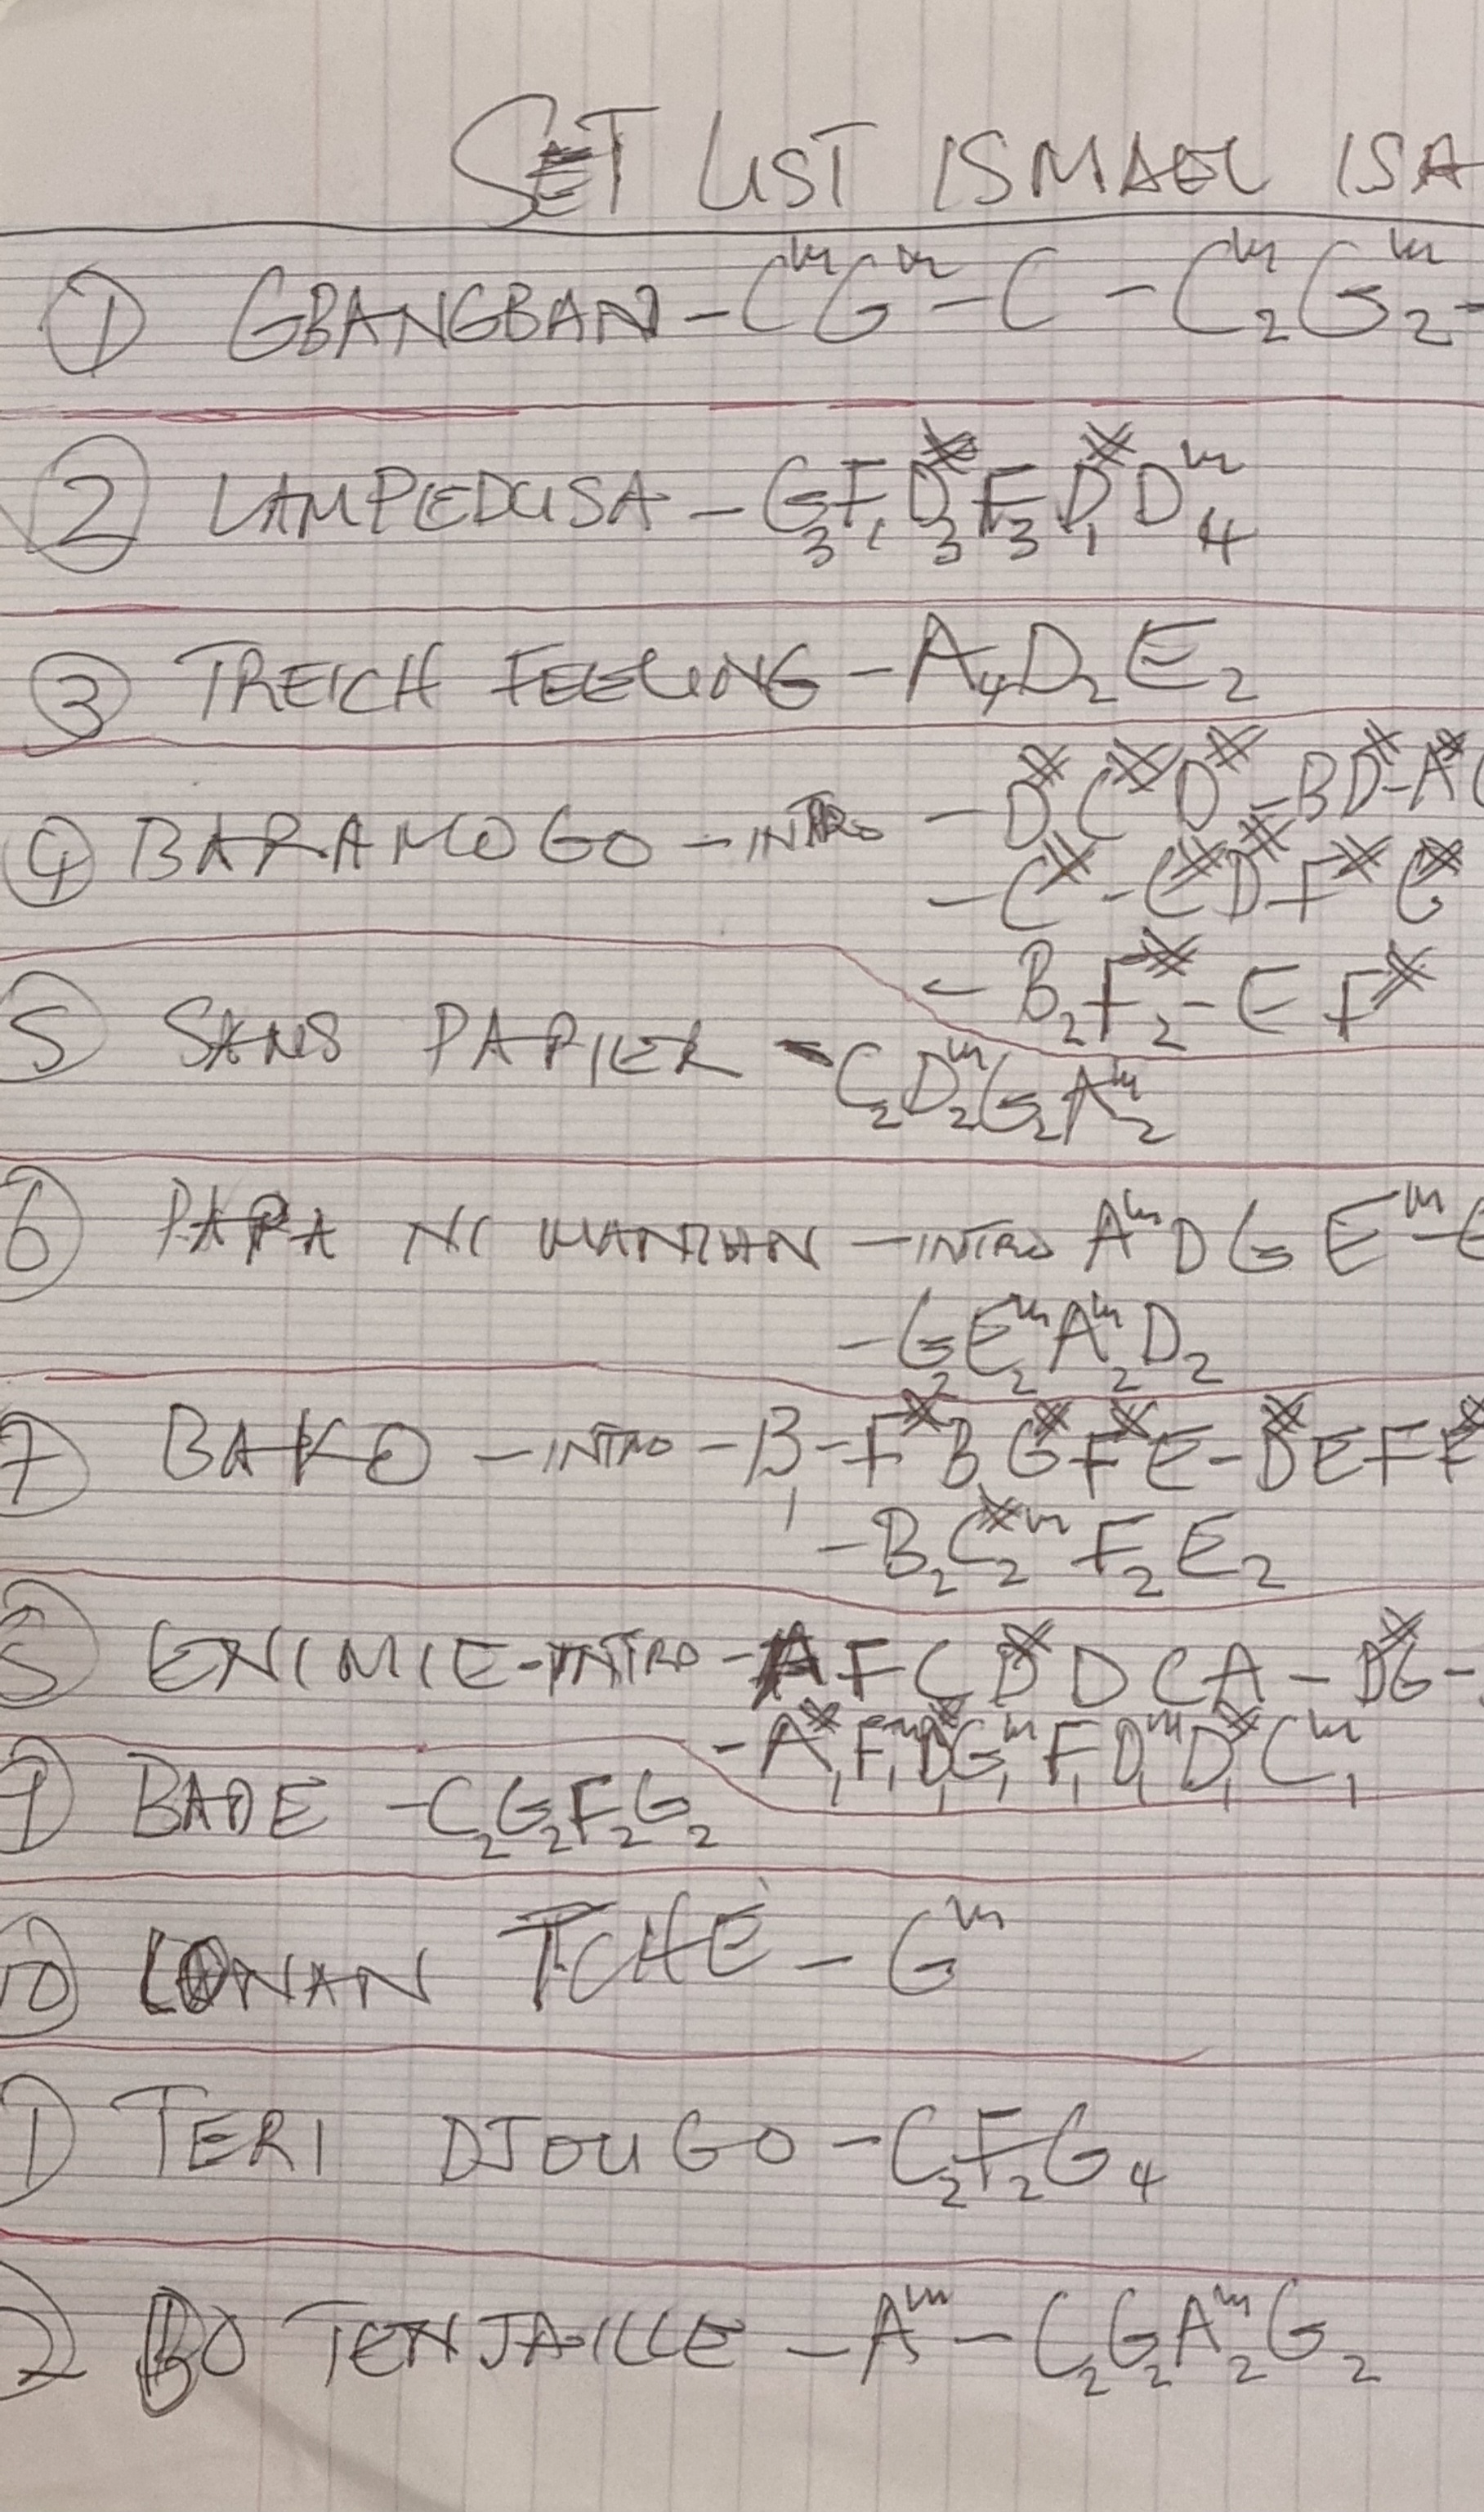 SET LIST ISMAEL ISA
① GBANGBAN - Cm Gm - C - Cm2 Gm2 -
② LAMPEDUSA - G3 F1 D#3 F3 D#1 Dm4
③ TREICH FEELING - A4 D2 E2
④ BARAMOGO - INTRO - D# C# D# - B D# - A#
- C# - C# D# F# G#
- B2 F#2 - E F#
5 SANS PAPIER - C2 Dm2 G2 Am2
6 PAPA NI - INTRO Am D G Em -
- G2 Em2 Am2 D2
7 BAKO - INTRO - B1 - F# B G# F# E - D# E F F#
- B2 C#m2 F2 E2
8 ENIMIE - INTRO - A F C D# D C A - D# G -
- A#1 F1 D#1 Gm1 F1 Dm1 D#1 Cm1
9 BADE - C2 G2 F2 G2
10 LONAN TCHÈ - Gm
1 TERI DJOUGO - C2 F2 G4
2 BO TENJAILLE - Am - C2 G2 Am2 G2